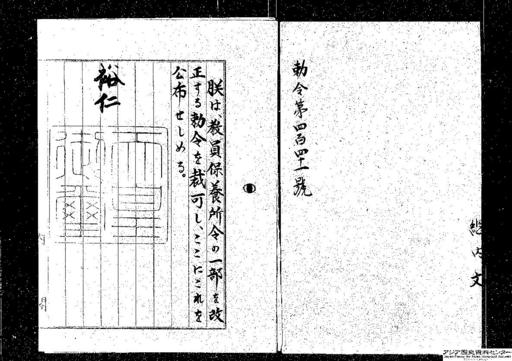 勅令第四百四十一號
朕は、教員保養所令の一部を改
正する勅令を裁可し、ここにこれを
公布せしめる。
裕仁
天皇
御璽
内閣
アジア歴史資料センター